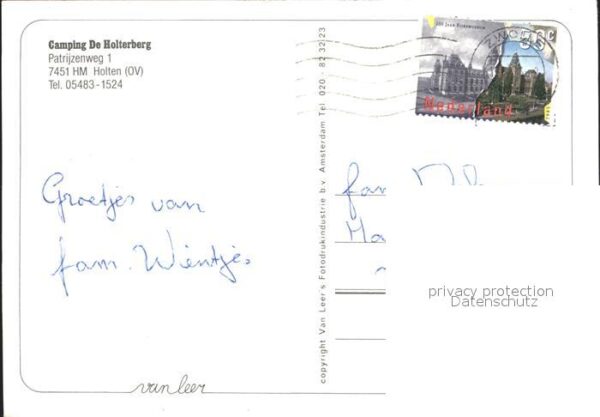 Camping De Holterberg
Patrijzenweg 1
7451 HM Holten (OV)
Tel. 05483-1524
Groetjes van
fam. Wientjes
van leer
copyright Van Leer's Fotodrukindustrie b.v. Amsterdam Tel. 020 - 82 32 23
100 Jaar Rijksmuseum
Nederland
ZWOLLE
fam
privacy protection
Datenschutz